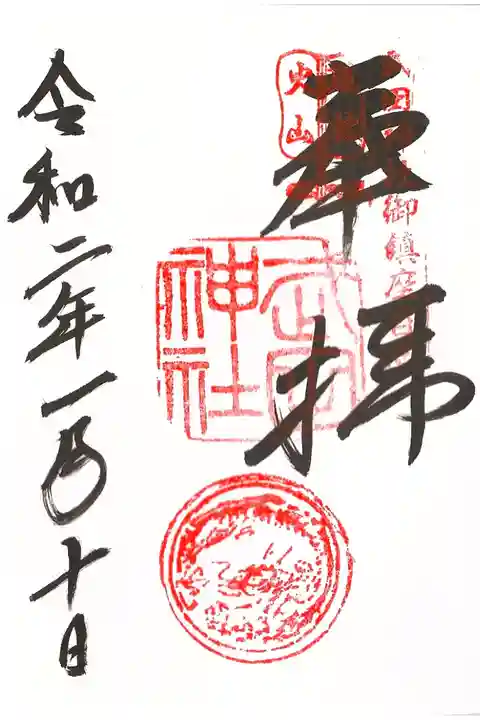 御鎮座百
奉拝
火山
武田
神社
令和二年一月十日